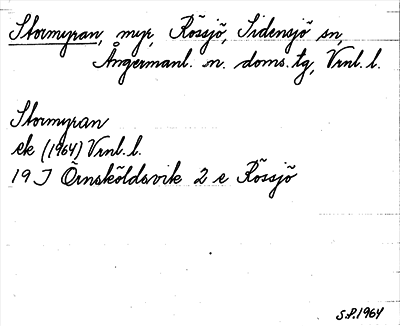 Stormyran, myr, Rössjö, Sidensjö sn,
Ångermanl. n. doms. tg, Vrnl. l.
Stormyran
ek (1964) Vrnl. l.
19 J Örnsköldsvik 2 e Rössjö
S.P. 1964